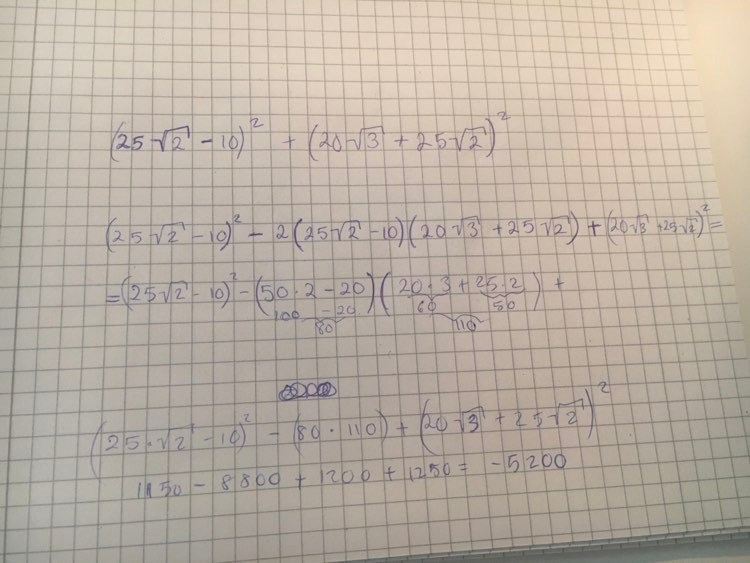 (25√2 - 10)² + (20√3 + 25√2)²
(25√2 - 10)² - 2(25√2 - 10)(20√3 + 25√2) + (20√3 + 25√2)² =
= (25√2 - 10)² - (50·2 - 20)(20·3 + 25·2) +
100 - 20 60 50
80 110
(25·√2 - 10)² - (80·110) + (20√3 + 25√2)²
1150 - 8800 + 1200 + 1250 = -5200